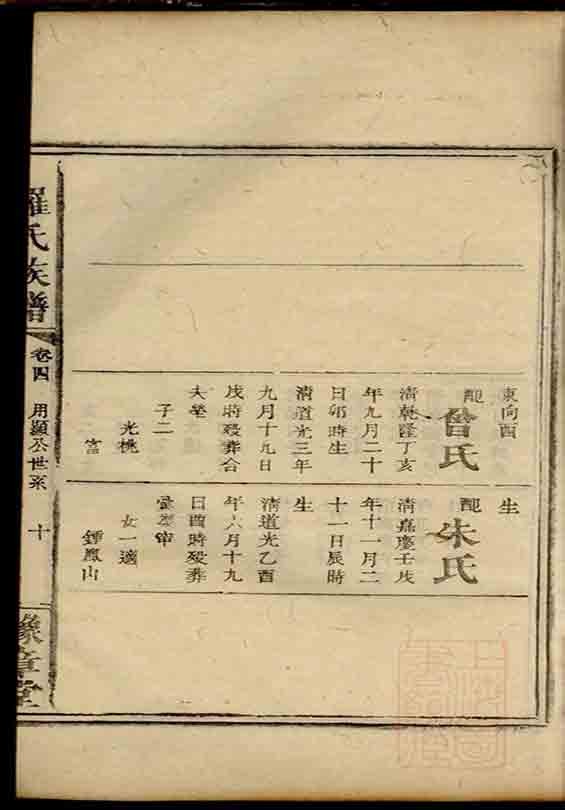 東向酉
配曾氏
清乾隆丁亥
年九月二十
日卯時生
清道光三年
九月十九日
戌時殁葬合
夫塋
子二
光桃
富
生
配朱氏
清嘉慶壬戌
年十一月二
十一日辰時
生
清道光乙酉
年六月十九
日酉時殁葬
女一適
鍾鳳山
羅氏族譜
卷四
用顯公世系
十
豫章堂